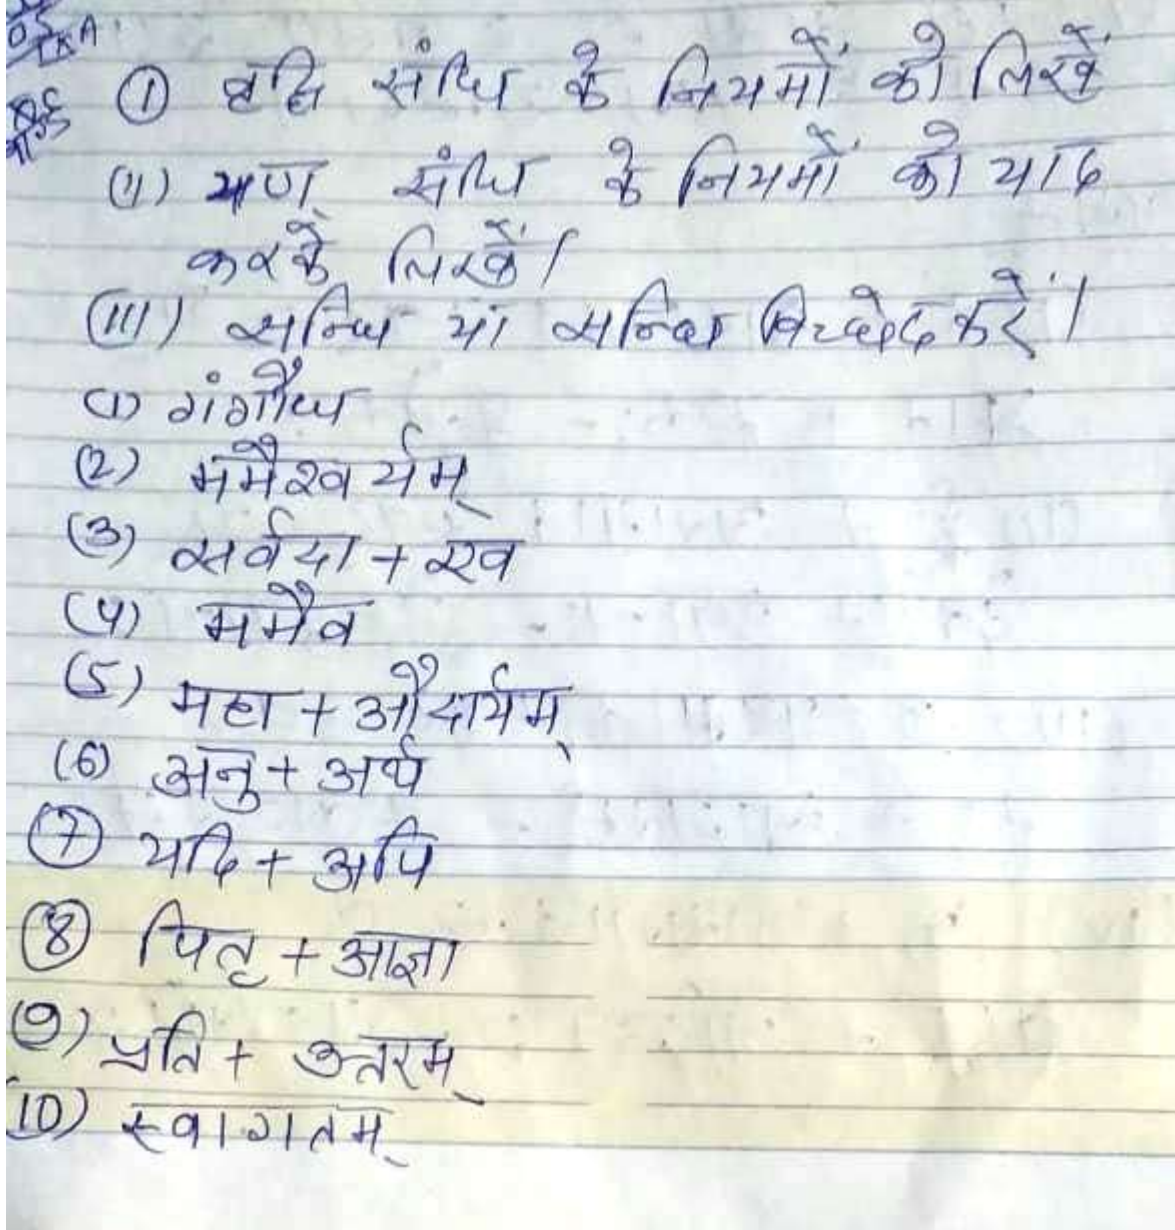 ① वृद्धि संधि के नियमों को लिखें
(ii) यण् संधि के नियमों को याद
करके लिखें।
(iii) सन्धि या सन्धि विच्छेद करें।
(1) गंगौघ
(2) ममैश्वर्यम्
(3) सर्वदा + एव
(4) ममैव
(5) महा + औदार्यम्
(6) अनु + अर्थ
(7) यदि + अपि
(8) पितृ + आज्ञा
(9) प्रति + उत्तरम्
(10) स्वागतम्